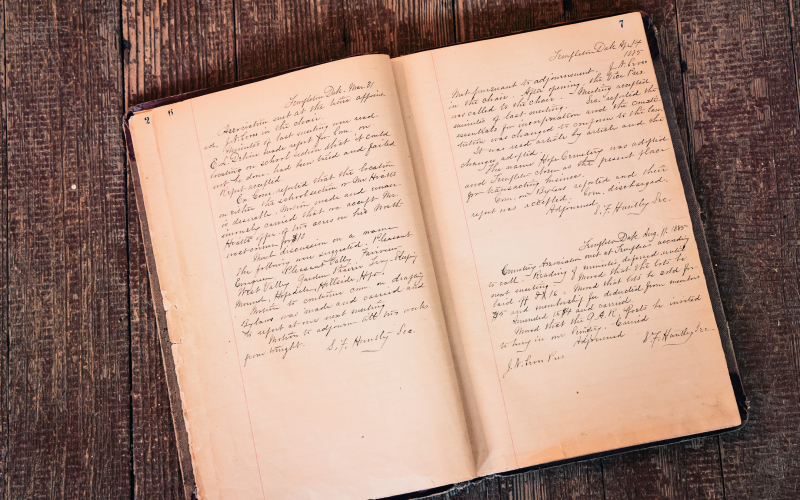 2 6
Templeton Dak. Mar. 21
Association met at the time appoint
ed. J. N. Lion in the chair.
Minutes of last meeting were read.
Com. made report for Com. on
locating on school section that it could
not be done. had been tried and failed
Report accepted.
Com reported that the location
on either the school section or Mr Heaths
is desirable. Motion made and unan-
imously carried that we accept Mr.
Heaths offer of two acres on his North
west corner for $11
Next discussion on a name
The following were suggested. Pleasant
Pleasant Valley, Fairview,
West Valley, Garden Prairie,
Mound, Hopedale, Hillside, Hope.
Motion to continue com on
Bylaws was made and carried and
to report at our next meeting.
Motion to adjourn till two weeks
from tonight. S. F. Huntley Sec.
7
Templeton Dak Apr. 4
1885
Met pursuant to adjournment. J. N. Lion
in the chair. After opening the Vice Pres.
was called to the chair. Meeting accepted
minutes of last meeting. Sec. reported the
essentials for incorporation and the consti-
tution was changed to conform to the law.
It was read article by article and the
changes adopted.
The name Hope Cemetery was adopted
and Templeton chosen as the present place
for transacting business.
Com. on Bylaws reported and their
report was accepted. Com. discharged.
Adjourned S. F. Huntley Sec.
Templeton Dak. Aug. 11. 1885
Cemetery Association met at Templeton according
to call. Reading of minutes deferred until
next meeting. Moved that the lots be
laid off Moved that lots be sold for
$5 and membership fee deducted from members
Amended to $4 and carried.
Moved that the G. A. R. Post be invited
to bury in our Cemetery. Carried
Adjourned S. F. Huntley Sec.
J. N. Lion Pres